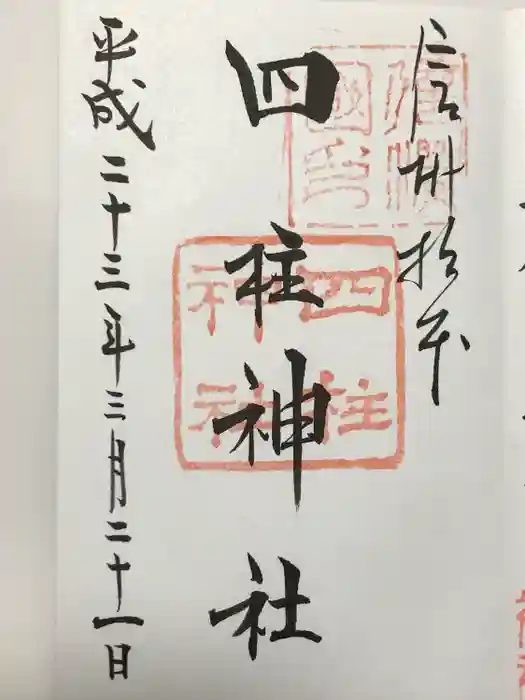 信州松本
四柱神社
四柱
神社
平成二十三年三月二十一日